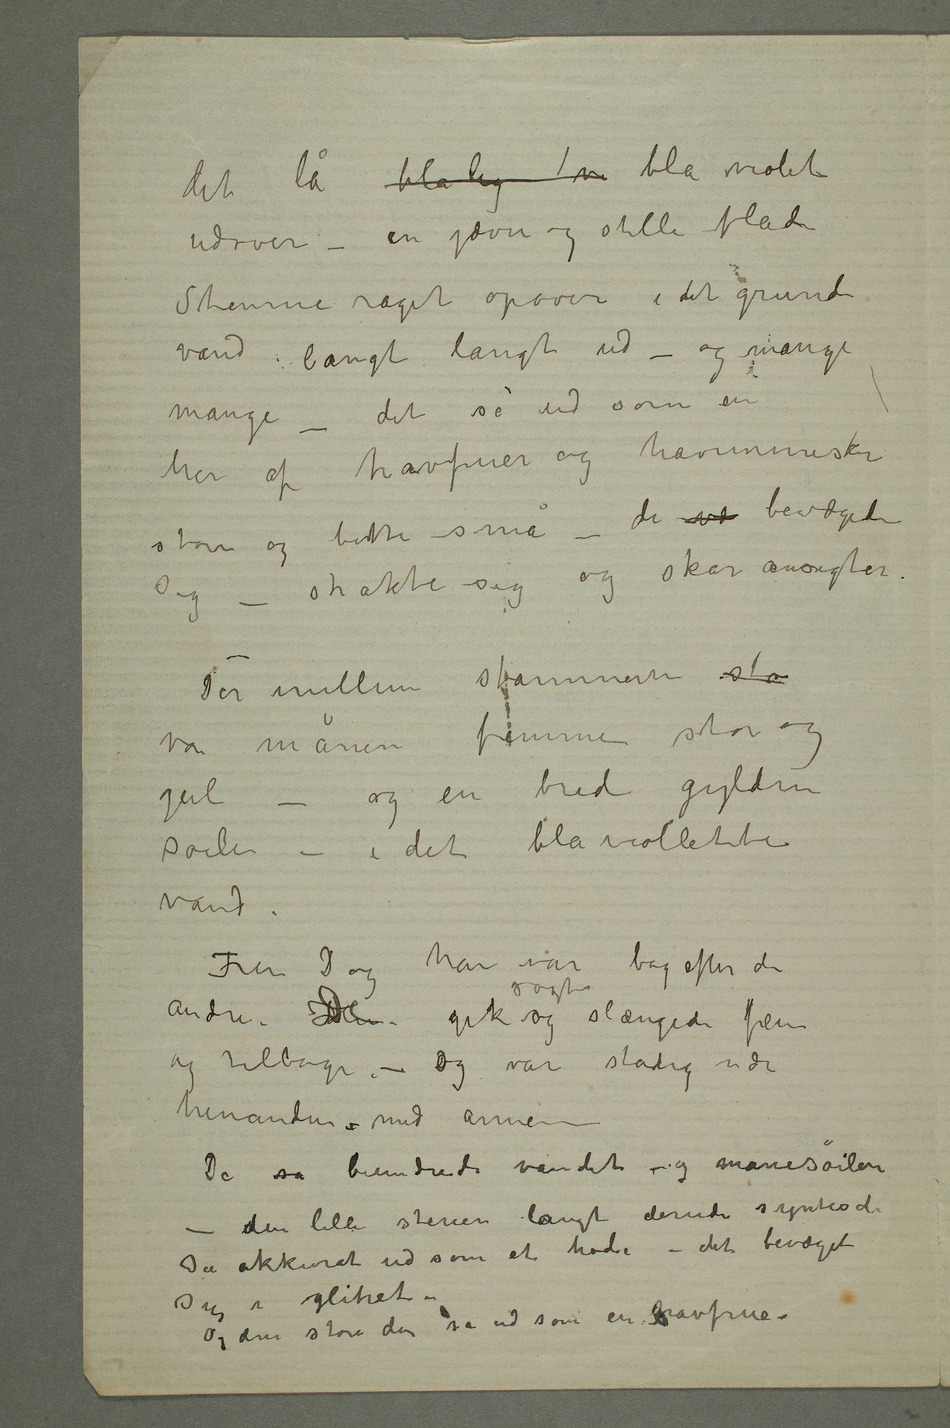 det lå blålig vi blå violet
udover – en jævn og stille flade
Stenene raget opover i det grunde
vand langt langt ud – og mange
mange – det så ud som en
hær af havfruer og havmennesker
store og bitte små – de væ bevægede
sig – strakte sig og skar ansigter.
Der imellem stammerne sto
var månen fremme stor og
gul – og en bred gylden
soile – i det blåviolette
vand.
Fru D og han var bag efter de
andre. De gik og slængede frem
sagte
og tilbage. – Og var stadig nær
hinanden – med armene
De sa beundrede vandet og månesöilen
– den lille stenen langt derude syntes de
så akkurat ud som et hode – det bevæget
sig i glitret –
Og den store der så ud som en havfrue –